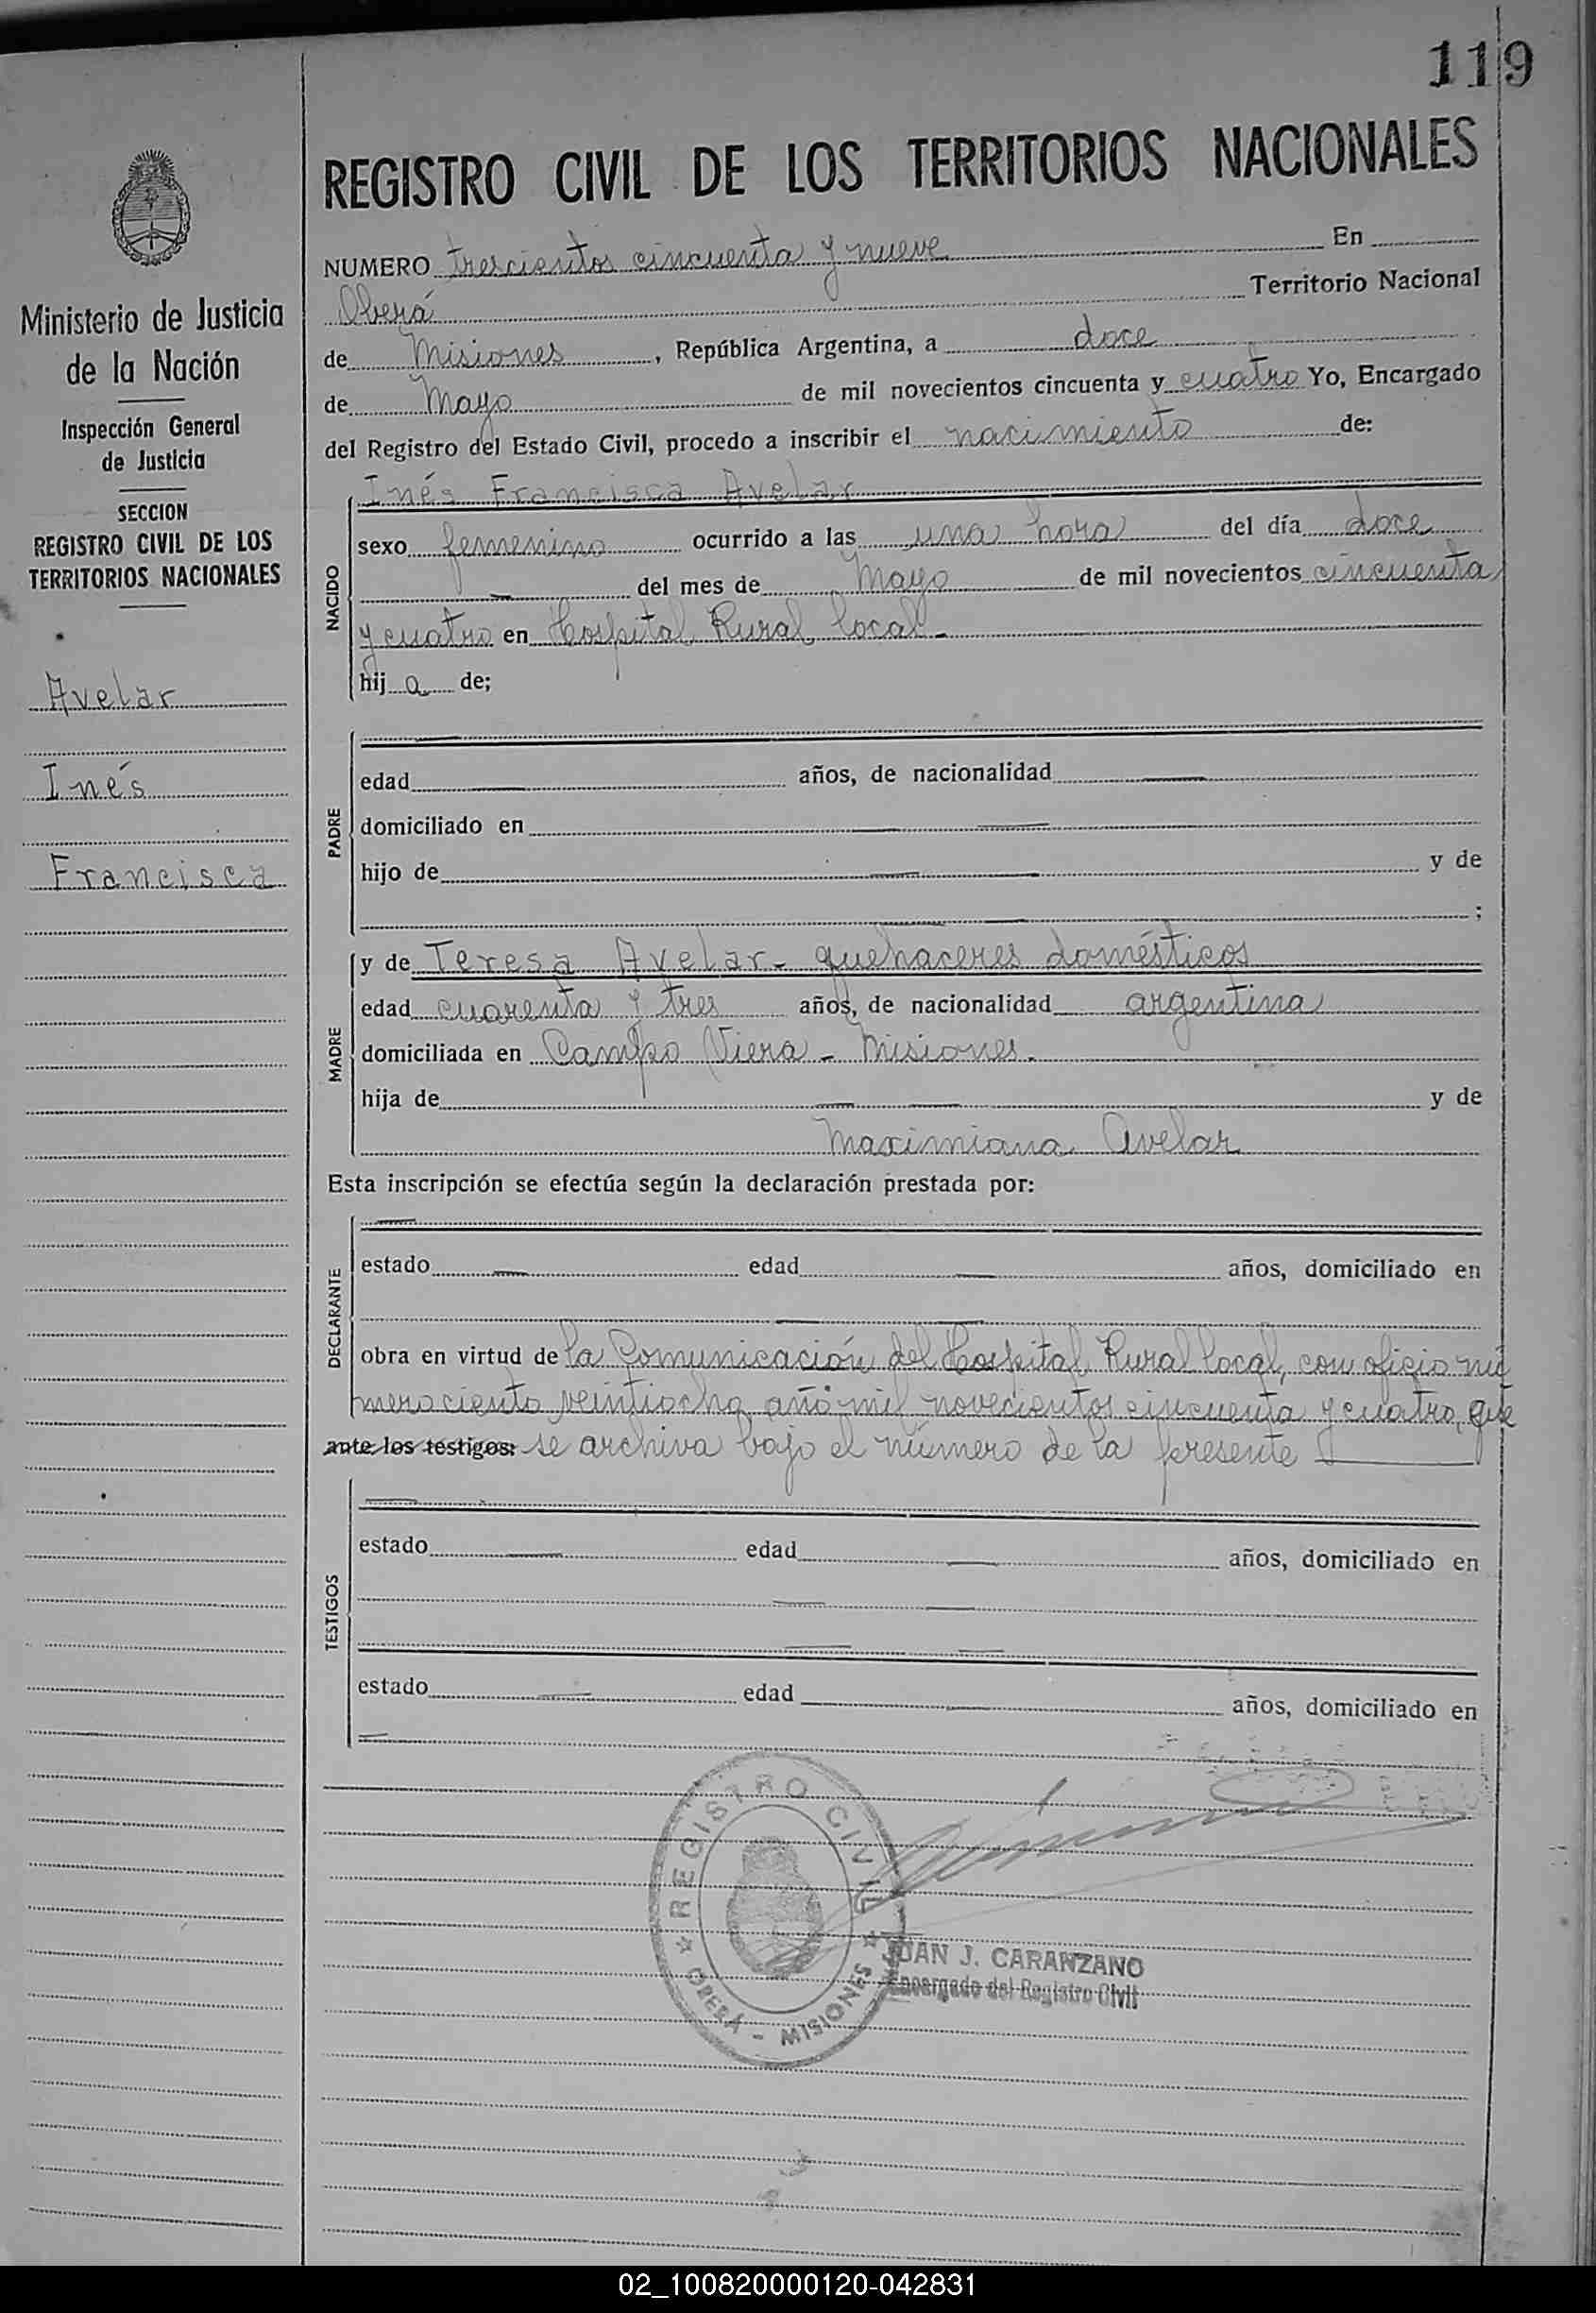 119
REGISTRO CIVIL DE LOS TERRITORIOS NACIONALES
Ministerio de Justicia
de la Nación
Inspección General
de Justicia
SECCION
REGISTRO CIVIL DE LOS
TERRITORIOS NACIONALES
Avelar
Inés
Francisca
NUMERO trescientos cincuenta y nueve En
Oberá Territorio Nacional
de Misiones, República Argentina, a doce
de Mayo de mil novecientos cincuenta y cuatro Yo, Encargado
del Registro del Estado Civil, procedo a inscribir el nacimiento de:
NACIDO
Inés Francisca Avelar
sexo femenino ocurrido a las una hora del día doce
— del mes de Mayo de mil novecientos cincuenta
y cuatro en Hospital Rural local -
hij a de;
PADRE
—
edad — años, de nacionalidad —
domiciliado en — —
hijo de — — y de
— ;
MADRE
y de Teresa Avelar - quehaceres domésticos
edad cuarenta y tres años, de nacionalidad argentina
domiciliada en Campo Viera - Misiones -
hija de — — y de
Maximiana Avelar
Esta inscripción se efectúa según la declaración prestada por:
DECLARANTE
—
estado — edad — años, domiciliado en
— —
obra en virtud de la Comunicación del Hospital Rural local, con oficio nú
mero ciento veintiocho año mil novecientos cincuenta y cuatro, que
ante los testigos: se archiva bajo el número de la presente
TESTIGOS
—
estado — edad — años, domiciliado en
— —
— —
estado — edad — años, domiciliado en
—
REGISTRO CIVIL
OBERÁ - MISIONES
JUAN J. CARANZANO
Encargado del Registro Civil
02_100820000120-042831